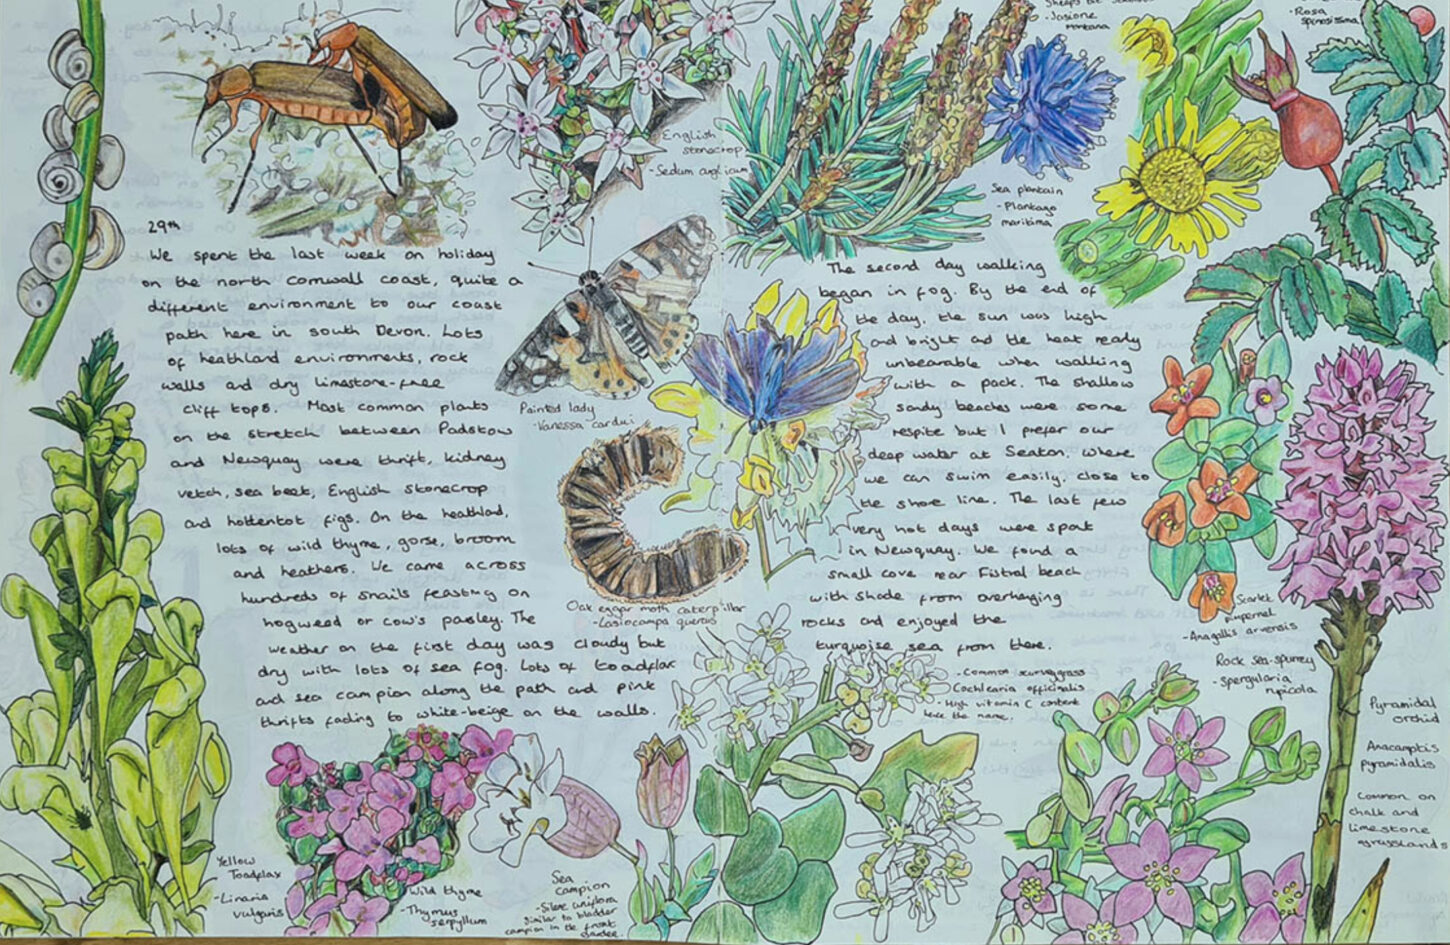 29th
We spent the last week on holiday
on the north Cornwall coast, quite a
different environment to our coast
path here in south Devon. Lots
of heathland environments, rock
walls and dry limestone-free
cliff tops. Most common plants
on the stretch between Padstow
and Newquay were thrift, kidney
vetch, sea beet, English stonecrop
and hottentot figs. On the heathland,
lots of wild thyme, gorse, broom
and heathers. We came across
hundreds of snails feasting on
hogweed or cow's parsley. The
weather on the first day was cloudy but
dry with lots of sea fog. Lots of toadflax
and sea campion along the path and pink
thrifts fading to white-beige on the walls.
English
stonecrop
- Sedum anglicum
Painted lady
- Vanessa cardui
Oak eggar moth caterpillar
- Lasiocampa quercus
Yellow
Toadflax
- Linaria
vulgaris
Wild thyme
- Thymus
serpyllum
Sea
campion
- Silene uniflora
Similar to bladder
campion in the front
garden.
The second day walking
began in fog. By the end of
the day, the sun was high
and bright and the heat really
unbearable when walking
with a pack. The shallow
sandy beaches were some
respite but I prefer our
deep water at Seaton, where
we can swim easily, close to
the shore line. The last few
very hot days were spent
in Newquay. We found a
small cove near Fistral beach
with shade from overhanging
rocks and enjoyed the
turquoise sea from there.
- Jasione
montana
Sea plantain
- Plantago
maritima
- Rosa
spinosissima
- Common scurvygrass
- Cochlearia officinalis
- High vitamin C content
hence the name.
Scarlet
pimpernel
- Anagallis arvensis
Rock sea-spurrey
- Spergularia
rupicola
Pyramidal
orchid
Anacamptis
pyramidalis
Common on
chalk and
limestone
grasslands